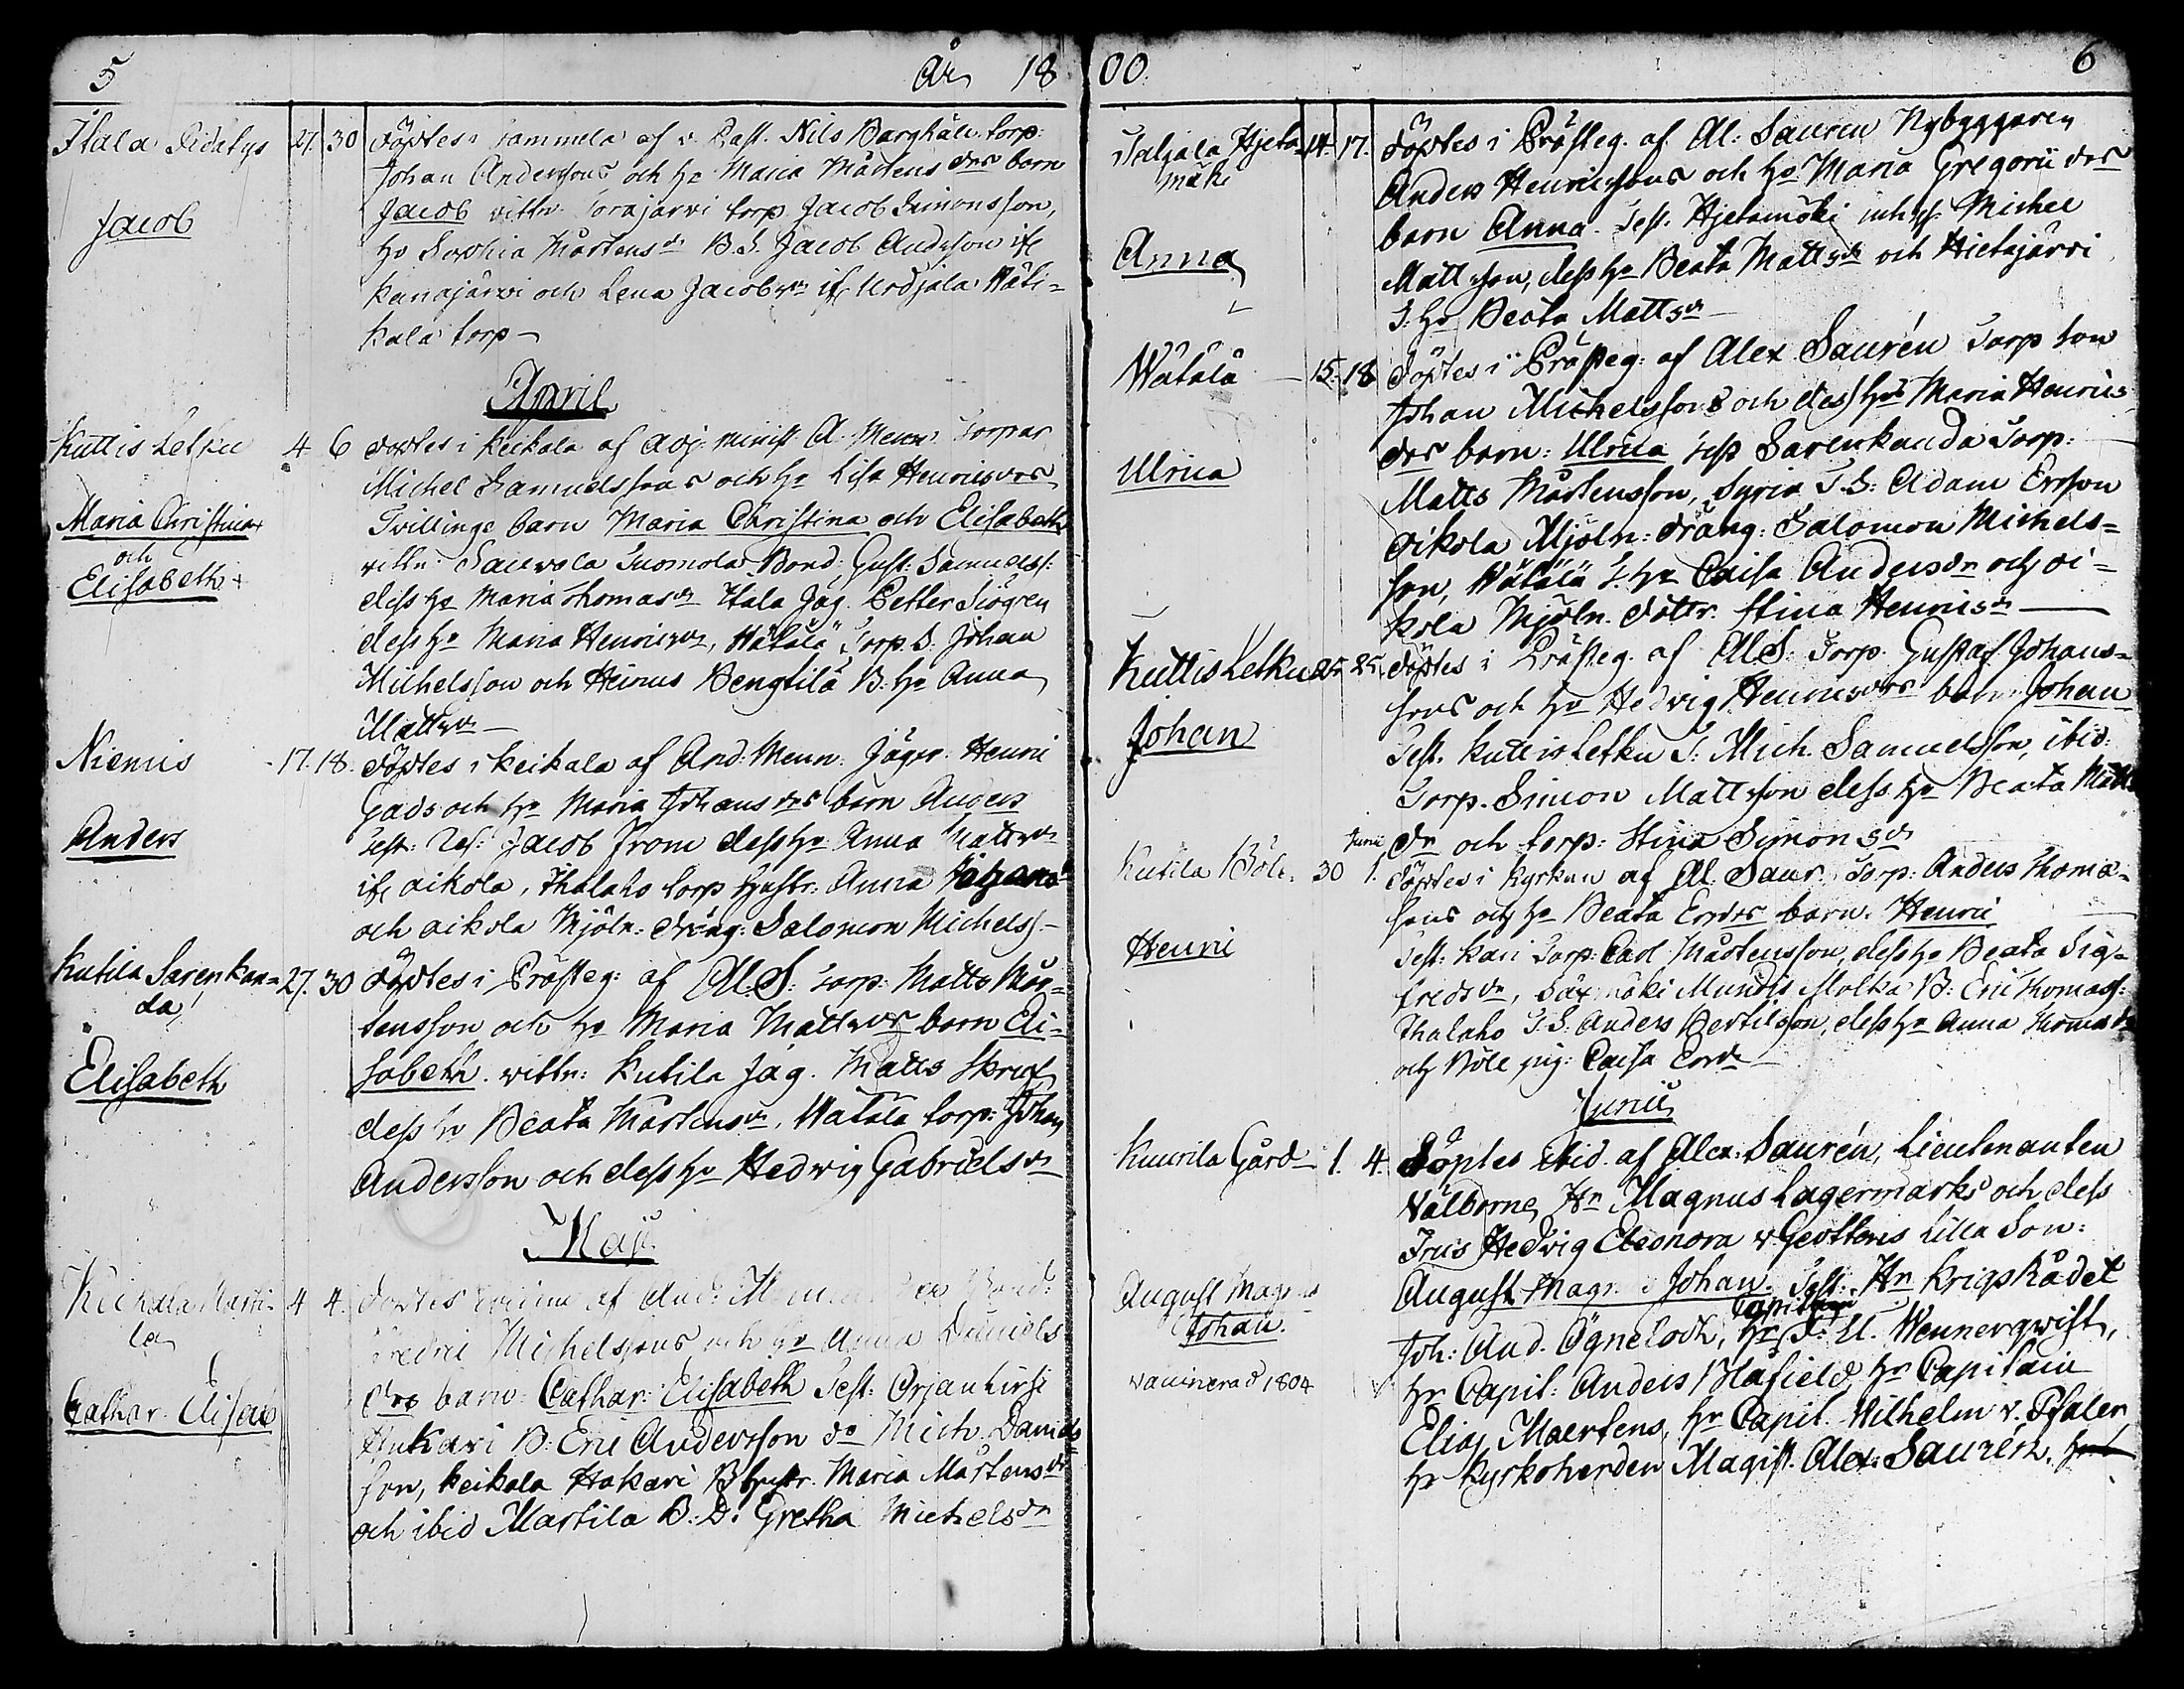 5 År 18
Itala Pidätys 27. 30 döptes i Sammela af v. Past. Nils Bergháll. torp:
Johan Anderssons och hu Maria Mårtens drs barn
Jacob
Jacob vittn. Torajärvi torp. Jacob Simonsson,
hu Sophia Mårtensdr B.S. Jacob Andersson ifr
Kanajärvi och Lena Jacobsdr ifr Urdjala Wäli=
kala torp —
April
Kuttis Letku 4 6 döptes i Keikala af Adj. minist A. Menn. Torpar
Michel Samuelssons och hu Lisa Henricsdrs
Maria Christina
och
Elisabeth
Tvillinge barn Maria Christina och Elisabeth
vittn. Sauvola Suomola Bond: Gust: Samuelss:
dess hu Maria Thomasdr Itala Jäg. Petter Siögren
dess hu Maria Henricsdr, Wätälä Torp. S. Johan
Michelsson och Heinus Bengtilä B. hu Anna
Mattsdr —
Niemis 17. 18. döptes i Keikala af And: Menn: Jäger. Henric
Gads och hu Maria Johansdrs barn Anders
Anders
Test: Res: Jacob From dess hu Anna Mattsdr
ifr Aikola, Thalaho torp hustr: Anna Johansd
och Aikola Mjöln: dräng: Salomon Michelss. —
Kutila Sarenkan=
da 27. 30 döptes i Prästeg: af Al. S: Torp: Matts Mår=
tensson och hu Maria Mattsdrs barn Eli=
Elisabeth
sabeth. vittn: Kutila Jäg. Matts Skrust
dess hu Beata Mårtensdr. Wätälä torp: Johan
Andersson och dess hu Hedvig Gabrielsdr
Maji
Keikala Marti=
la 4 4. döptes af And: Bond:
Fredric Michelssons och hu Anna Daniels
Cathar. Elisab
drs barn Cathar: Elisabeth Test: Orjanhirsi
Hukari B: Eric Andersson do Mich. Daniels
son, Keikala Hakari B hustr. Maria Mårtensdr
och ibid Martila B. D: Gretha Michelsdr
00. 6
Taljala Hjeta
mäki 14. 17. döptes i Prästeg. af Al: Sauren Nybyggaren
Anders Henricssons och hu Maria Gregorii drs
Anna
barn Anna. Test. Hjetamäki inhys. Michel
Mattsson, dess hu Beata Mattsdr och Hietajärvi
T. hu Beata Mattsdr
Wätälä 15. 18 döptes i Prästeg: af Alex Saurén Torp son
Johan Michelssons och dess hus Maria Henrics
Ulrica
drs barn: Ulrica Test Sarenkanda Torp:
Matts Mårtensson, Syria T.S: Adam Ersson
Aikola Mjöln: dräng: Salomon Michels=
son, Wätälä T. hu Caisa Andersdr och Ai=
kola Mjöln. dottr. Stina Henricsdr —
Kuttis Letku 25. 25. döptes i Prästeg. af Al S: Torp. Gustaf Johans=
sons och hu Hedvig Henricsdrs barn Johan
Johan
Test. Kuttis Letku T: Mich. Samuelsson, ibid:
Torp. Simon Mattsson dess hu Beata Matts
dr och torp: Stina Simonsdr
Kutila Böle. 30 Junii 1. döptes i kyrkan af Al. Saur. Torp: Anders Thomæ=
sons och hu Beata Ersdrs barn. Henric
Henric
Test: Kari Torp: Carl Mårtensson, dess hu Beata Sig=
fredsdr, Saxmäki Mundis Molka B: Eric Thomass:
Thalaho T.S. Anders Bertilsson, dess hu Anna Thomasdr
och Böle pig: Caisa Ersdr —
Junii
Kuurila Gård 1. 4. Döptes ibid. af Alex: Saurén, Lieutenanten
Välborne Hr Magnus Lagermarks och dess
Frus Hedvig Eleonora v Gerttens Lilla Son:
August Magnus
Johan.
August Magn. Johan. Test: Hr Krigsrådet
Joh: And. Ögneloch, Hr Capitain F: U. Wennerqvist,
vaccinerad 1804
hr Capit: Anders Blafield, hr Capitain
Elias Maertens, hr Capit. Wilhelm v. Pfaler
hr Kyrkoherden Magist. Alex: Saurén.